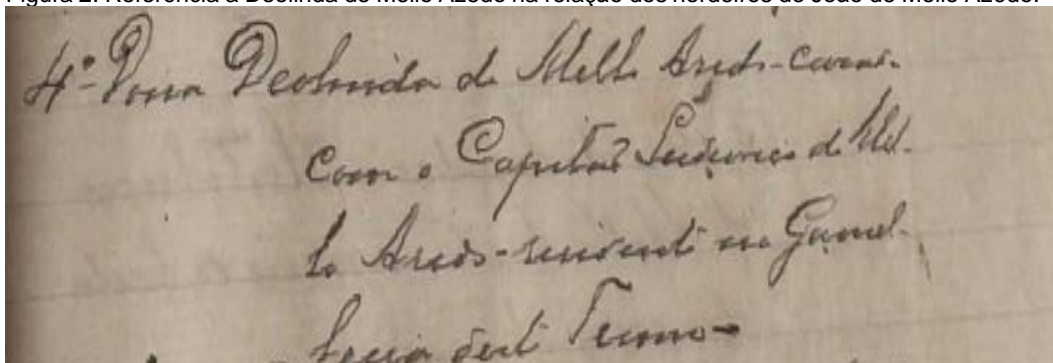 Figura 2: Referência a Deolinda de Mello Azedo na relação dos herdeiros de João de Mello Azedo.
4º- Dona Deolinda de Mello Azedo - casada
com o Capitão de Mel-
lo Azedo - residente em Gamel-
leira deste Termo -